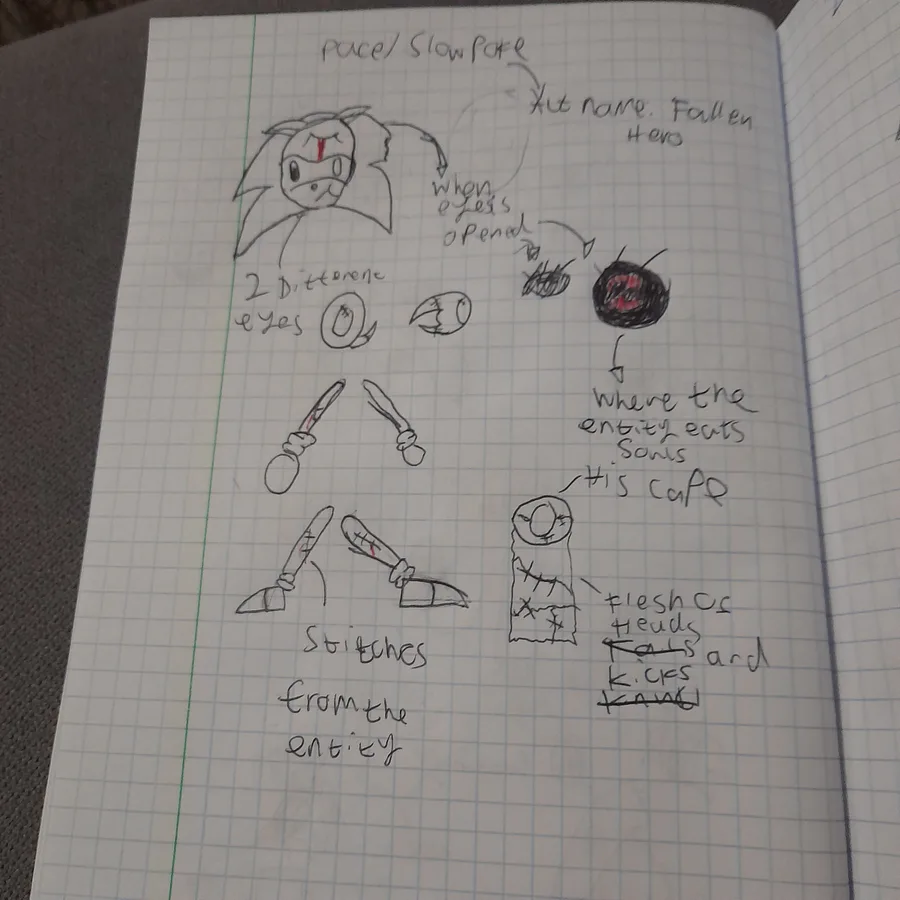 Pace/Slowpoke
Alt name. Fallen
Hero
when
eyess
opened
2 Different
eyes
where the
entity eats
Souls
His cape
flesh Of
Heads
Tails and
kicks
Knuc
Stitches
from the
entity